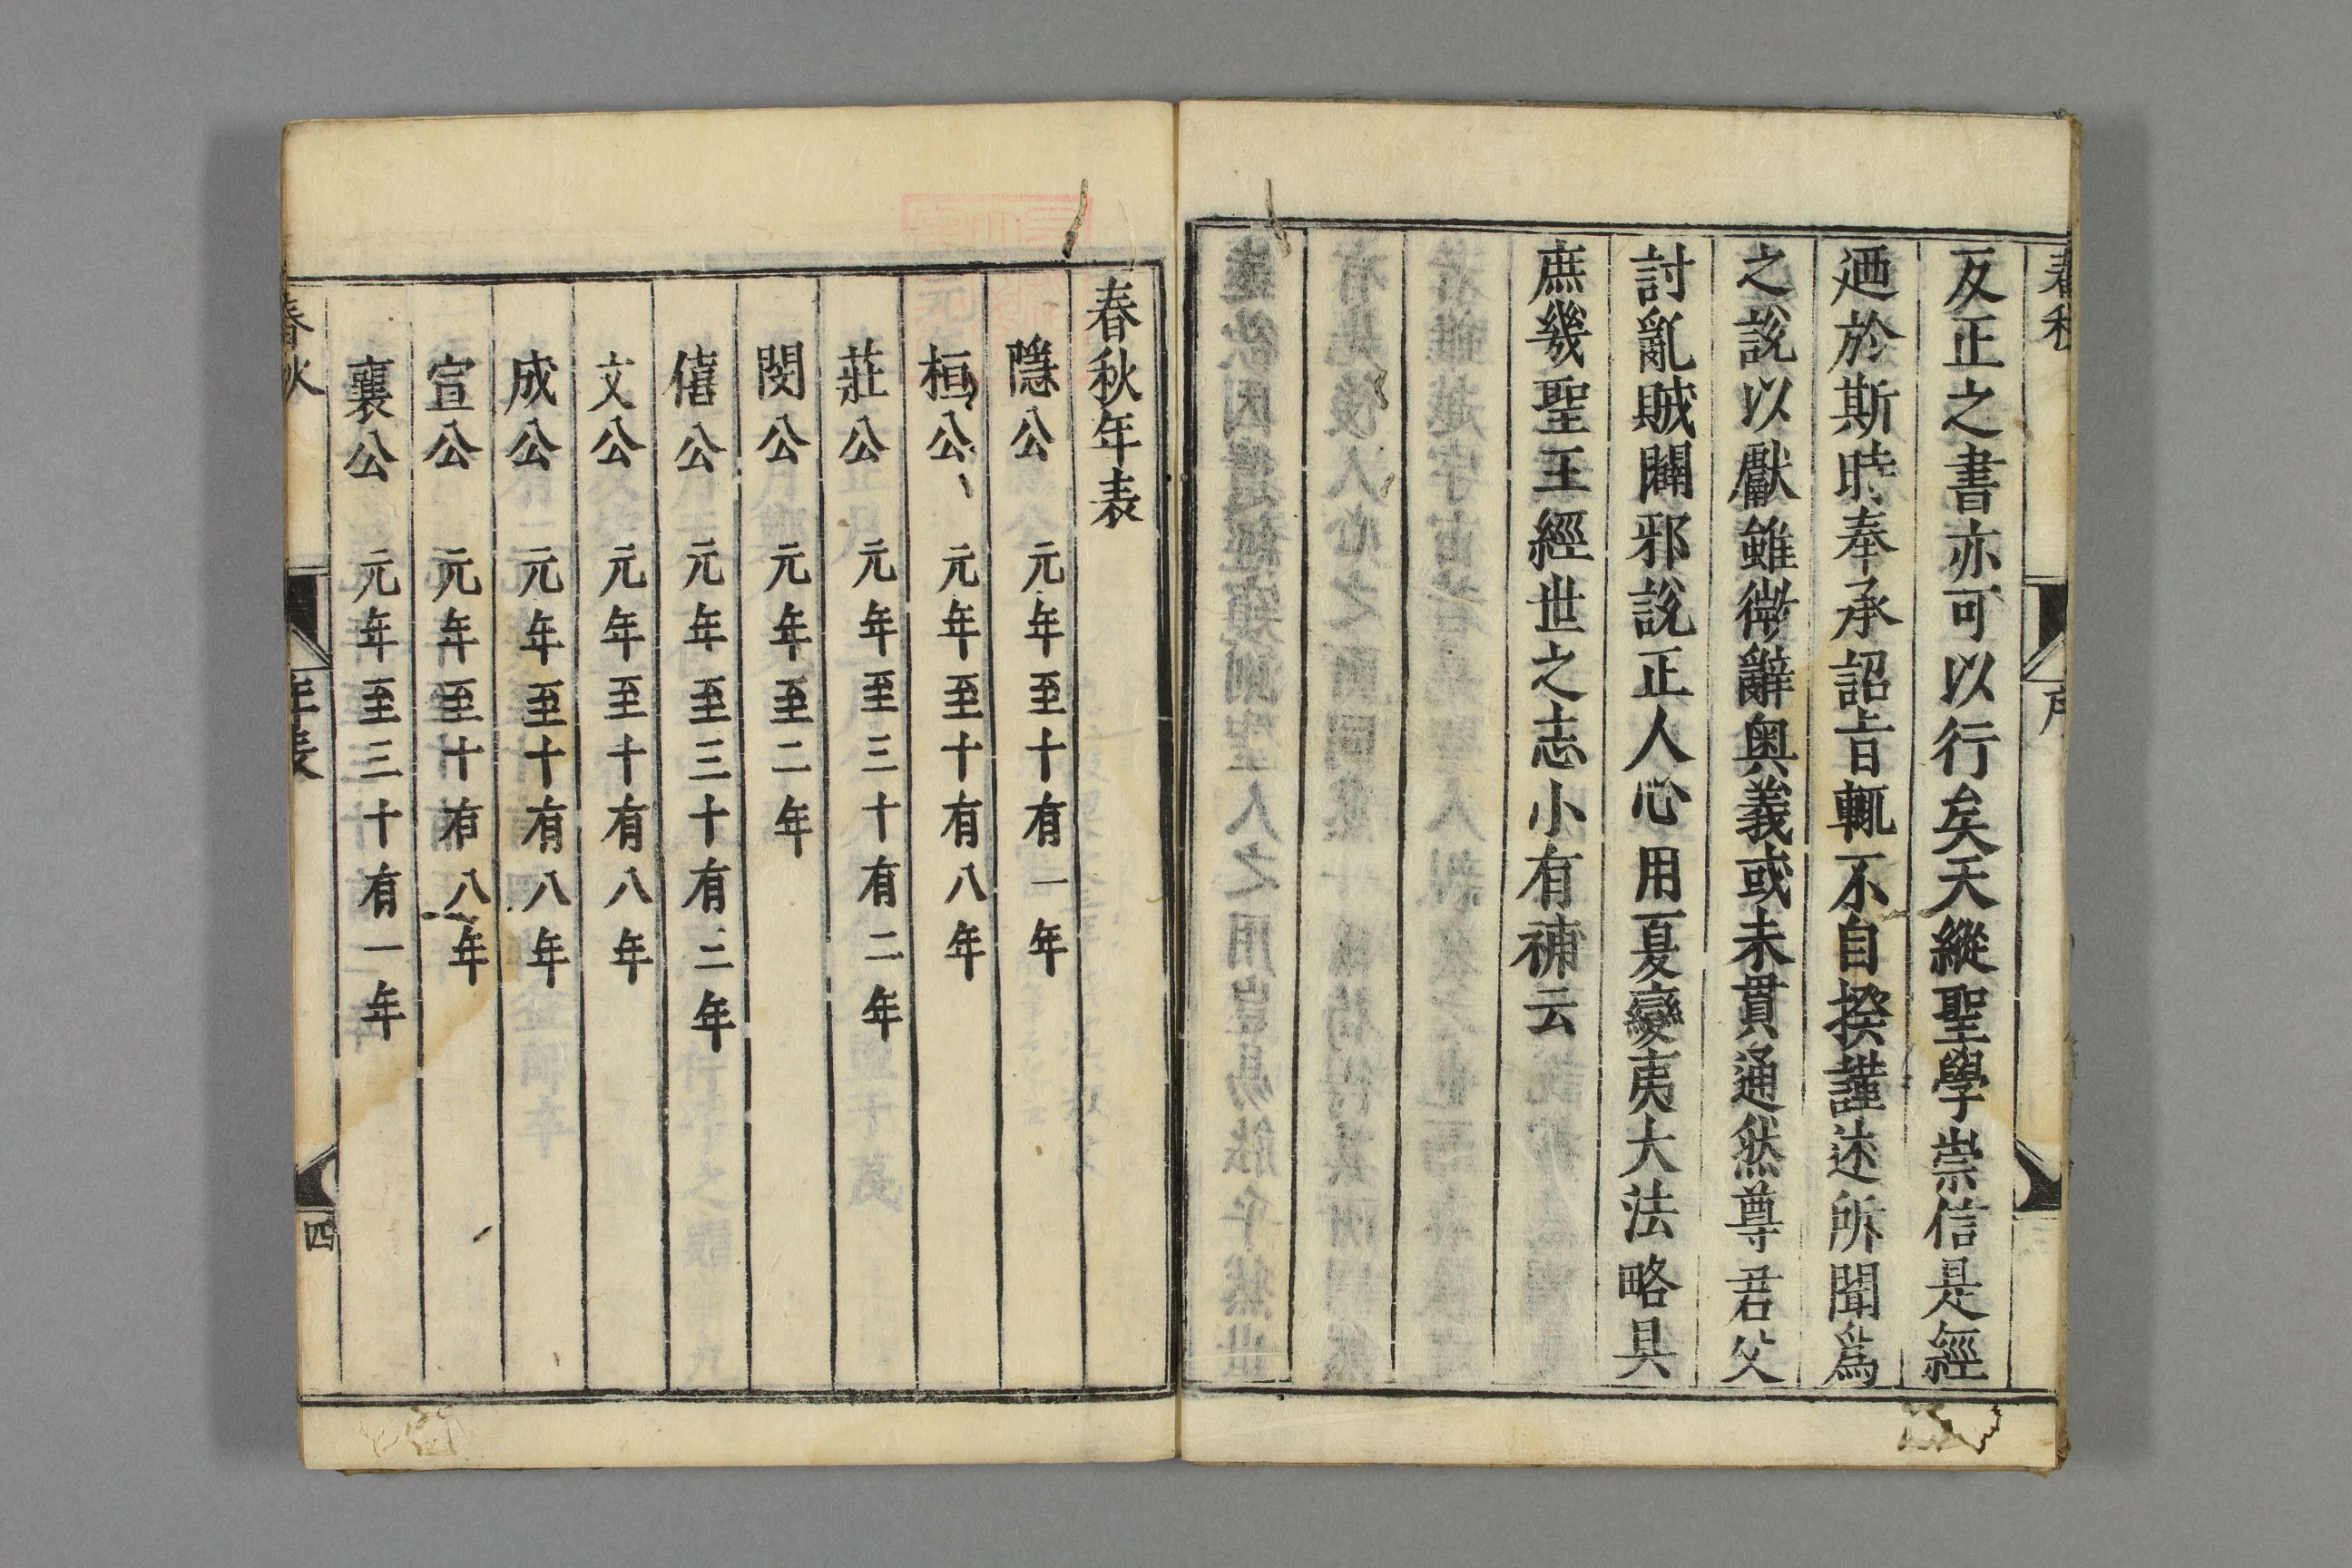 春秋
序
反正之書亦可以行矣天縱聖學崇信是經
廼於斯時奉承詔旨輒不自揆謹述所聞爲
之說以獻雖微辭奥義或未貫通然尊君父
討亂賊闢邪說正人心用夏變夷大法略具
庶幾聖王經世之志小有補云
春秋年表
隱公　元年至十有一年
桓公　元年至十有八年
莊公　元年至三十有二年
閔公　元年至二年
僖公　元年至三十有三年
文公　元年至十有八年
成公　元年至十有八年
宣公　元年至十有八年
襄公　元年至三十有一年
春秋
年表
四